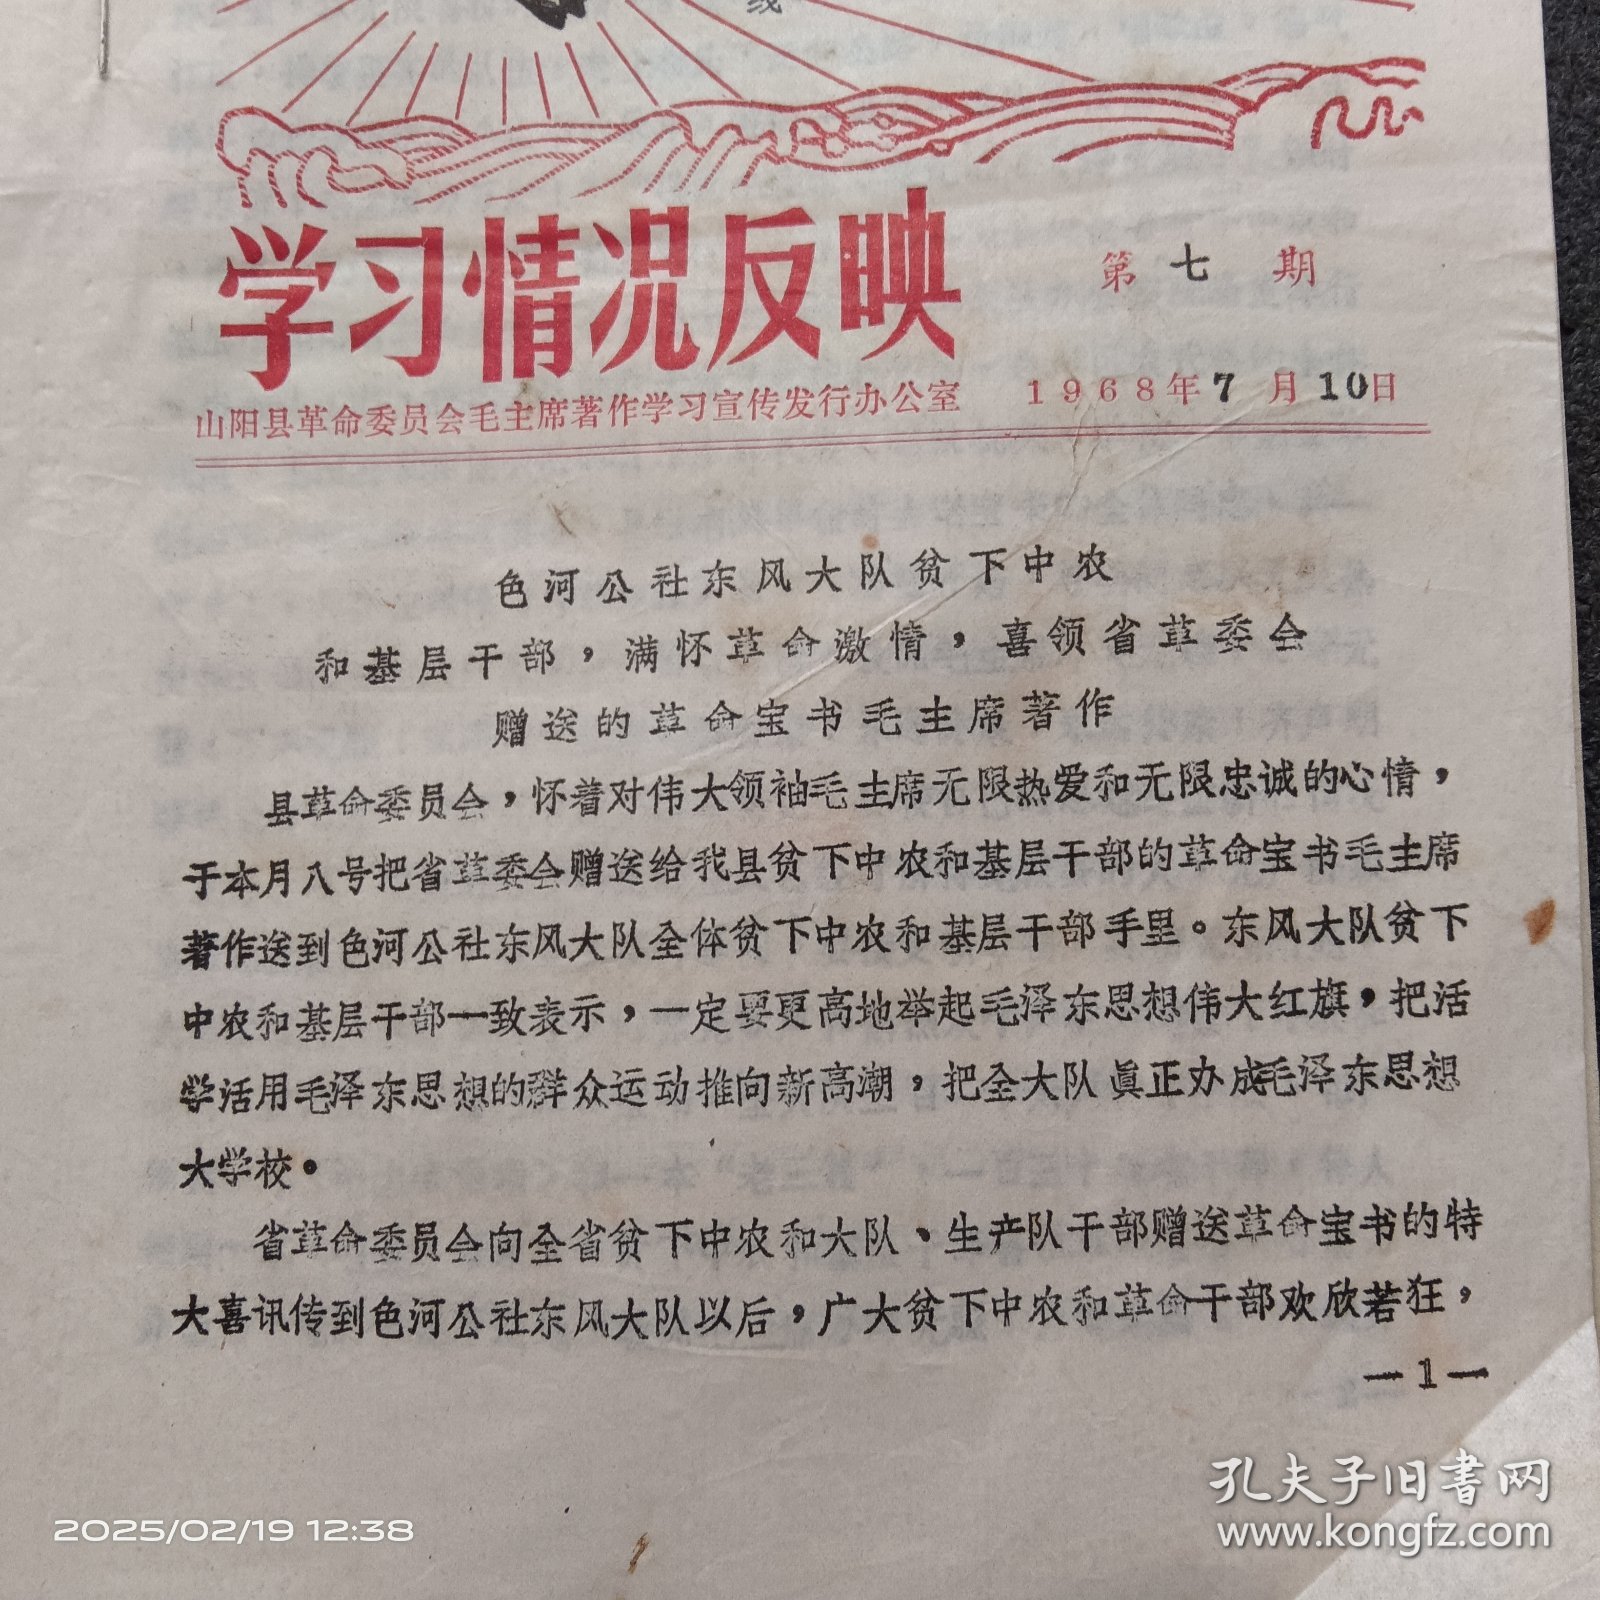 线
学习情况反映
第七期
山阳县革命委员会毛主席著作学习宣传发行办公室 1968年7月10日
色河公社东风大队贫下中农
和基层干部，满怀革命激情，喜领省革委会
赠送的革命宝书毛主席著作
县革命委员会，怀着对伟大领袖毛主席无限热爱和无限忠诚的心情，
于本月八号把省革委会赠送给我县贫下中农和基层干部的革命宝书毛主席
著作送到色河公社东风大队全体贫下中农和基层干部手里。东风大队贫下
中农和基层干部一致表示，一定要更高地举起毛泽东思想伟大红旗，把活
学活用毛泽东思想的群众运动推向新高潮，把全大队眞正办成毛泽东思想
大学校。
省革命委员会向全省贫下中农和大队、生产队干部赠送革命宝书的特
大喜讯传到色河公社东风大队以后，广大贫下中农和革命干部欢欣若狂，
—1—
孔夫子旧书网
www.kongfz.com
2025/02/19 12:38